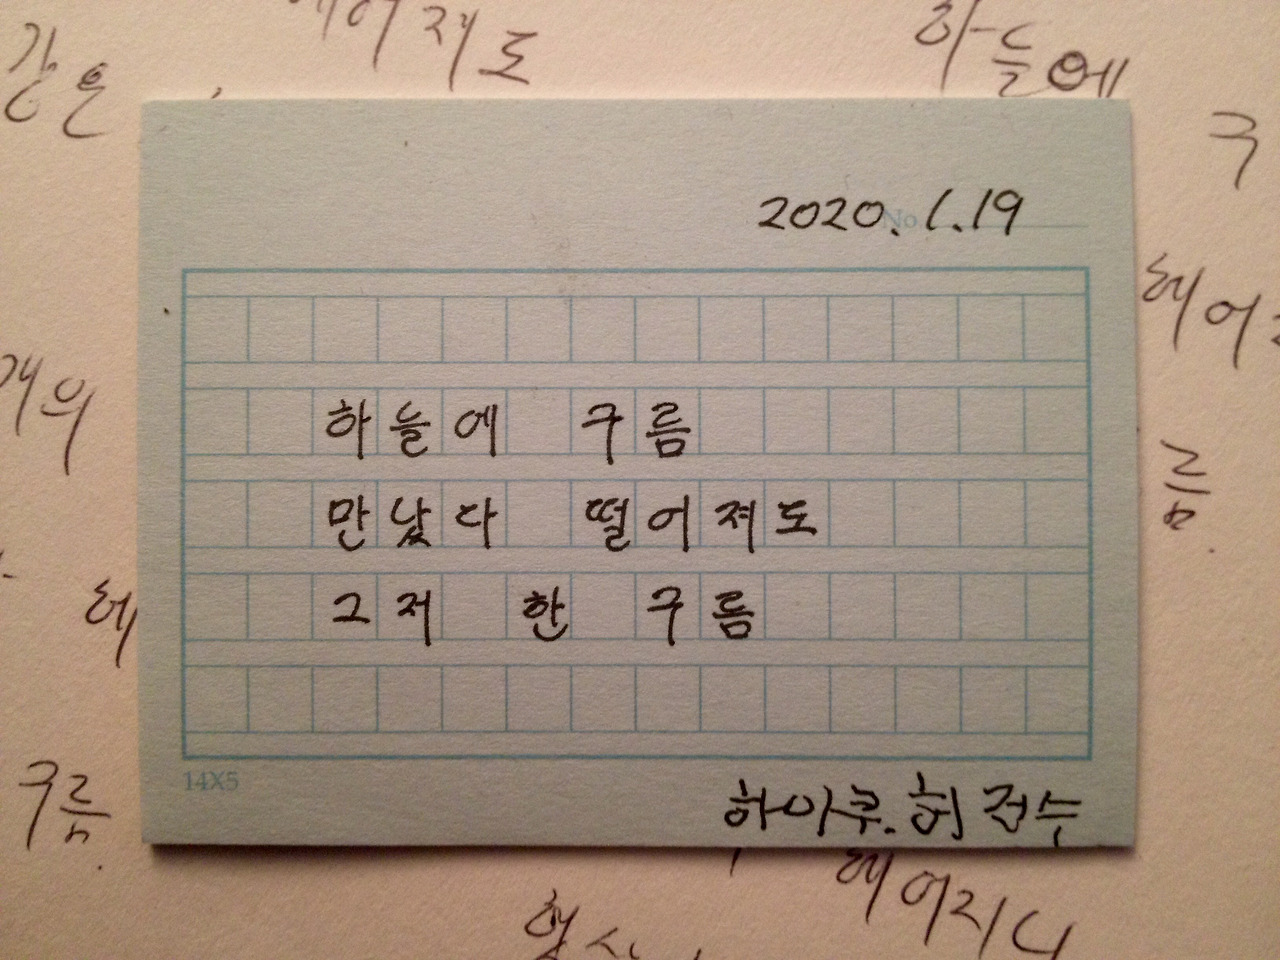 같은
헤어져도
하늘에
구
2020. 1. 19
No.
헤어
하늘에 구름
만났다 떨어져도
그저 한 구름
름.
헤
구름.
14X5
하이쿠. 허전수
헤어지니